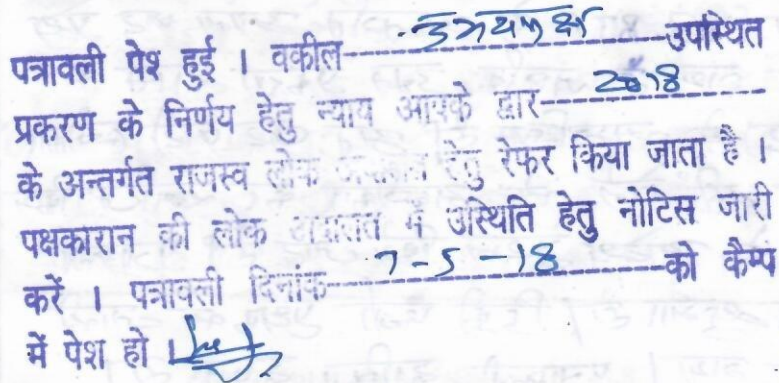 पत्रावली पेश हुई । वकील उभयपक्ष उपस्थित
प्रकरण के निर्णय हेतु न्याय आपके द्वार 2018
के अन्तर्गत राजस्व लोक अदालत हेतु रेफर किया जाता है ।
पक्षकारान की लोक अदालत में उस्थिति हेतु नोटिस जारी
करें । पत्रावली दिनांक 7-5-18 को कैम्प
में पेश हो ।